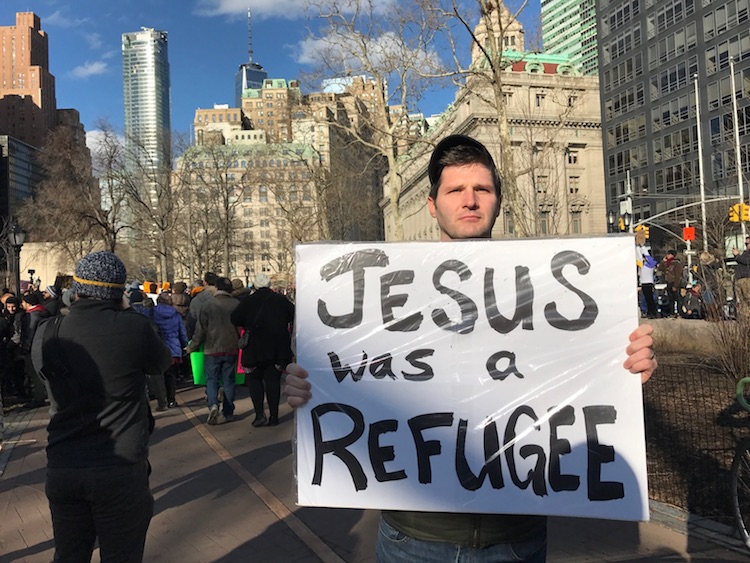 JESUS
was a
REFUGEE